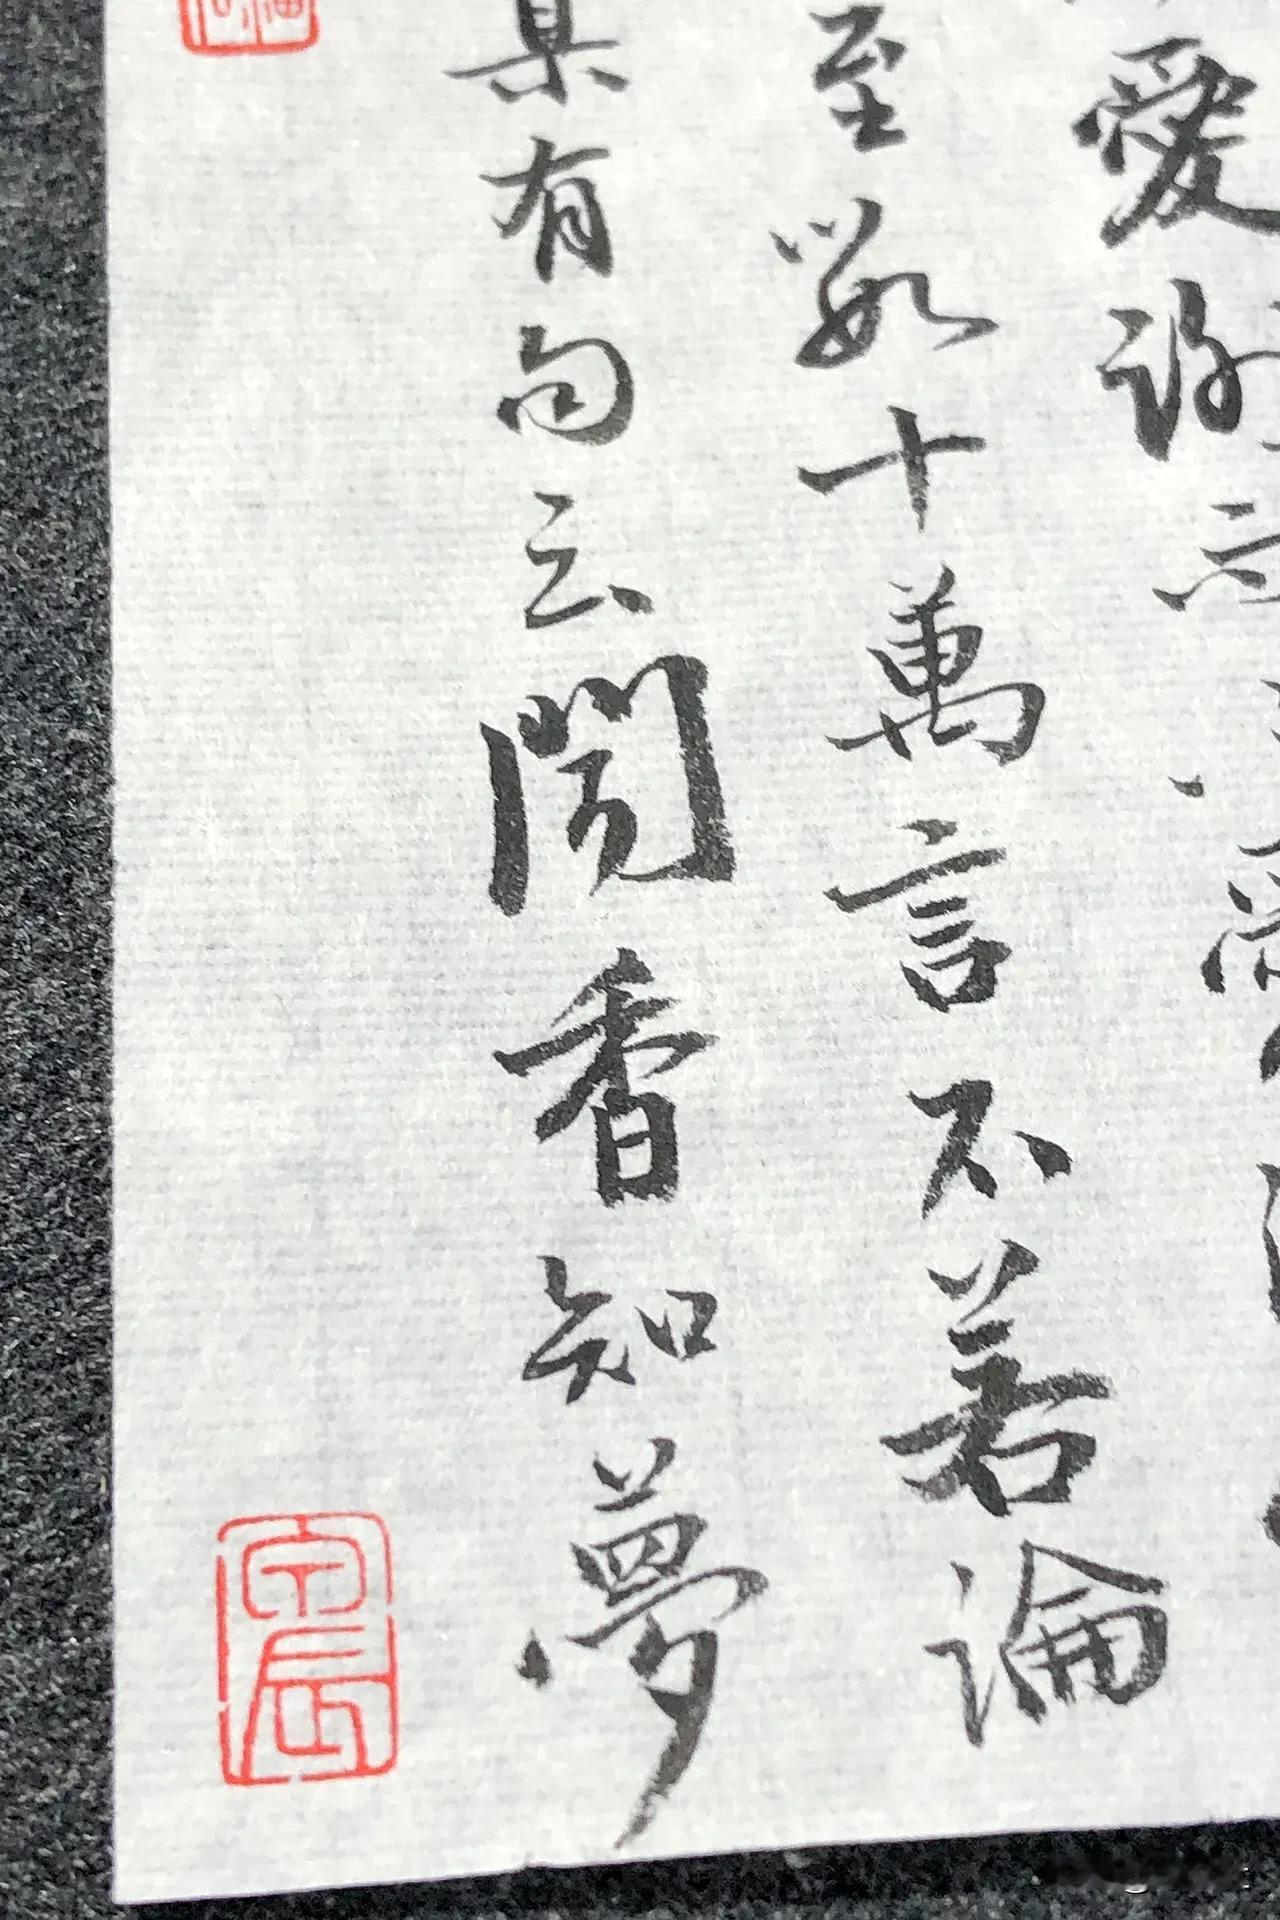 愛謝
至數十萬言不若論
有句云聞香知夢
宇辰